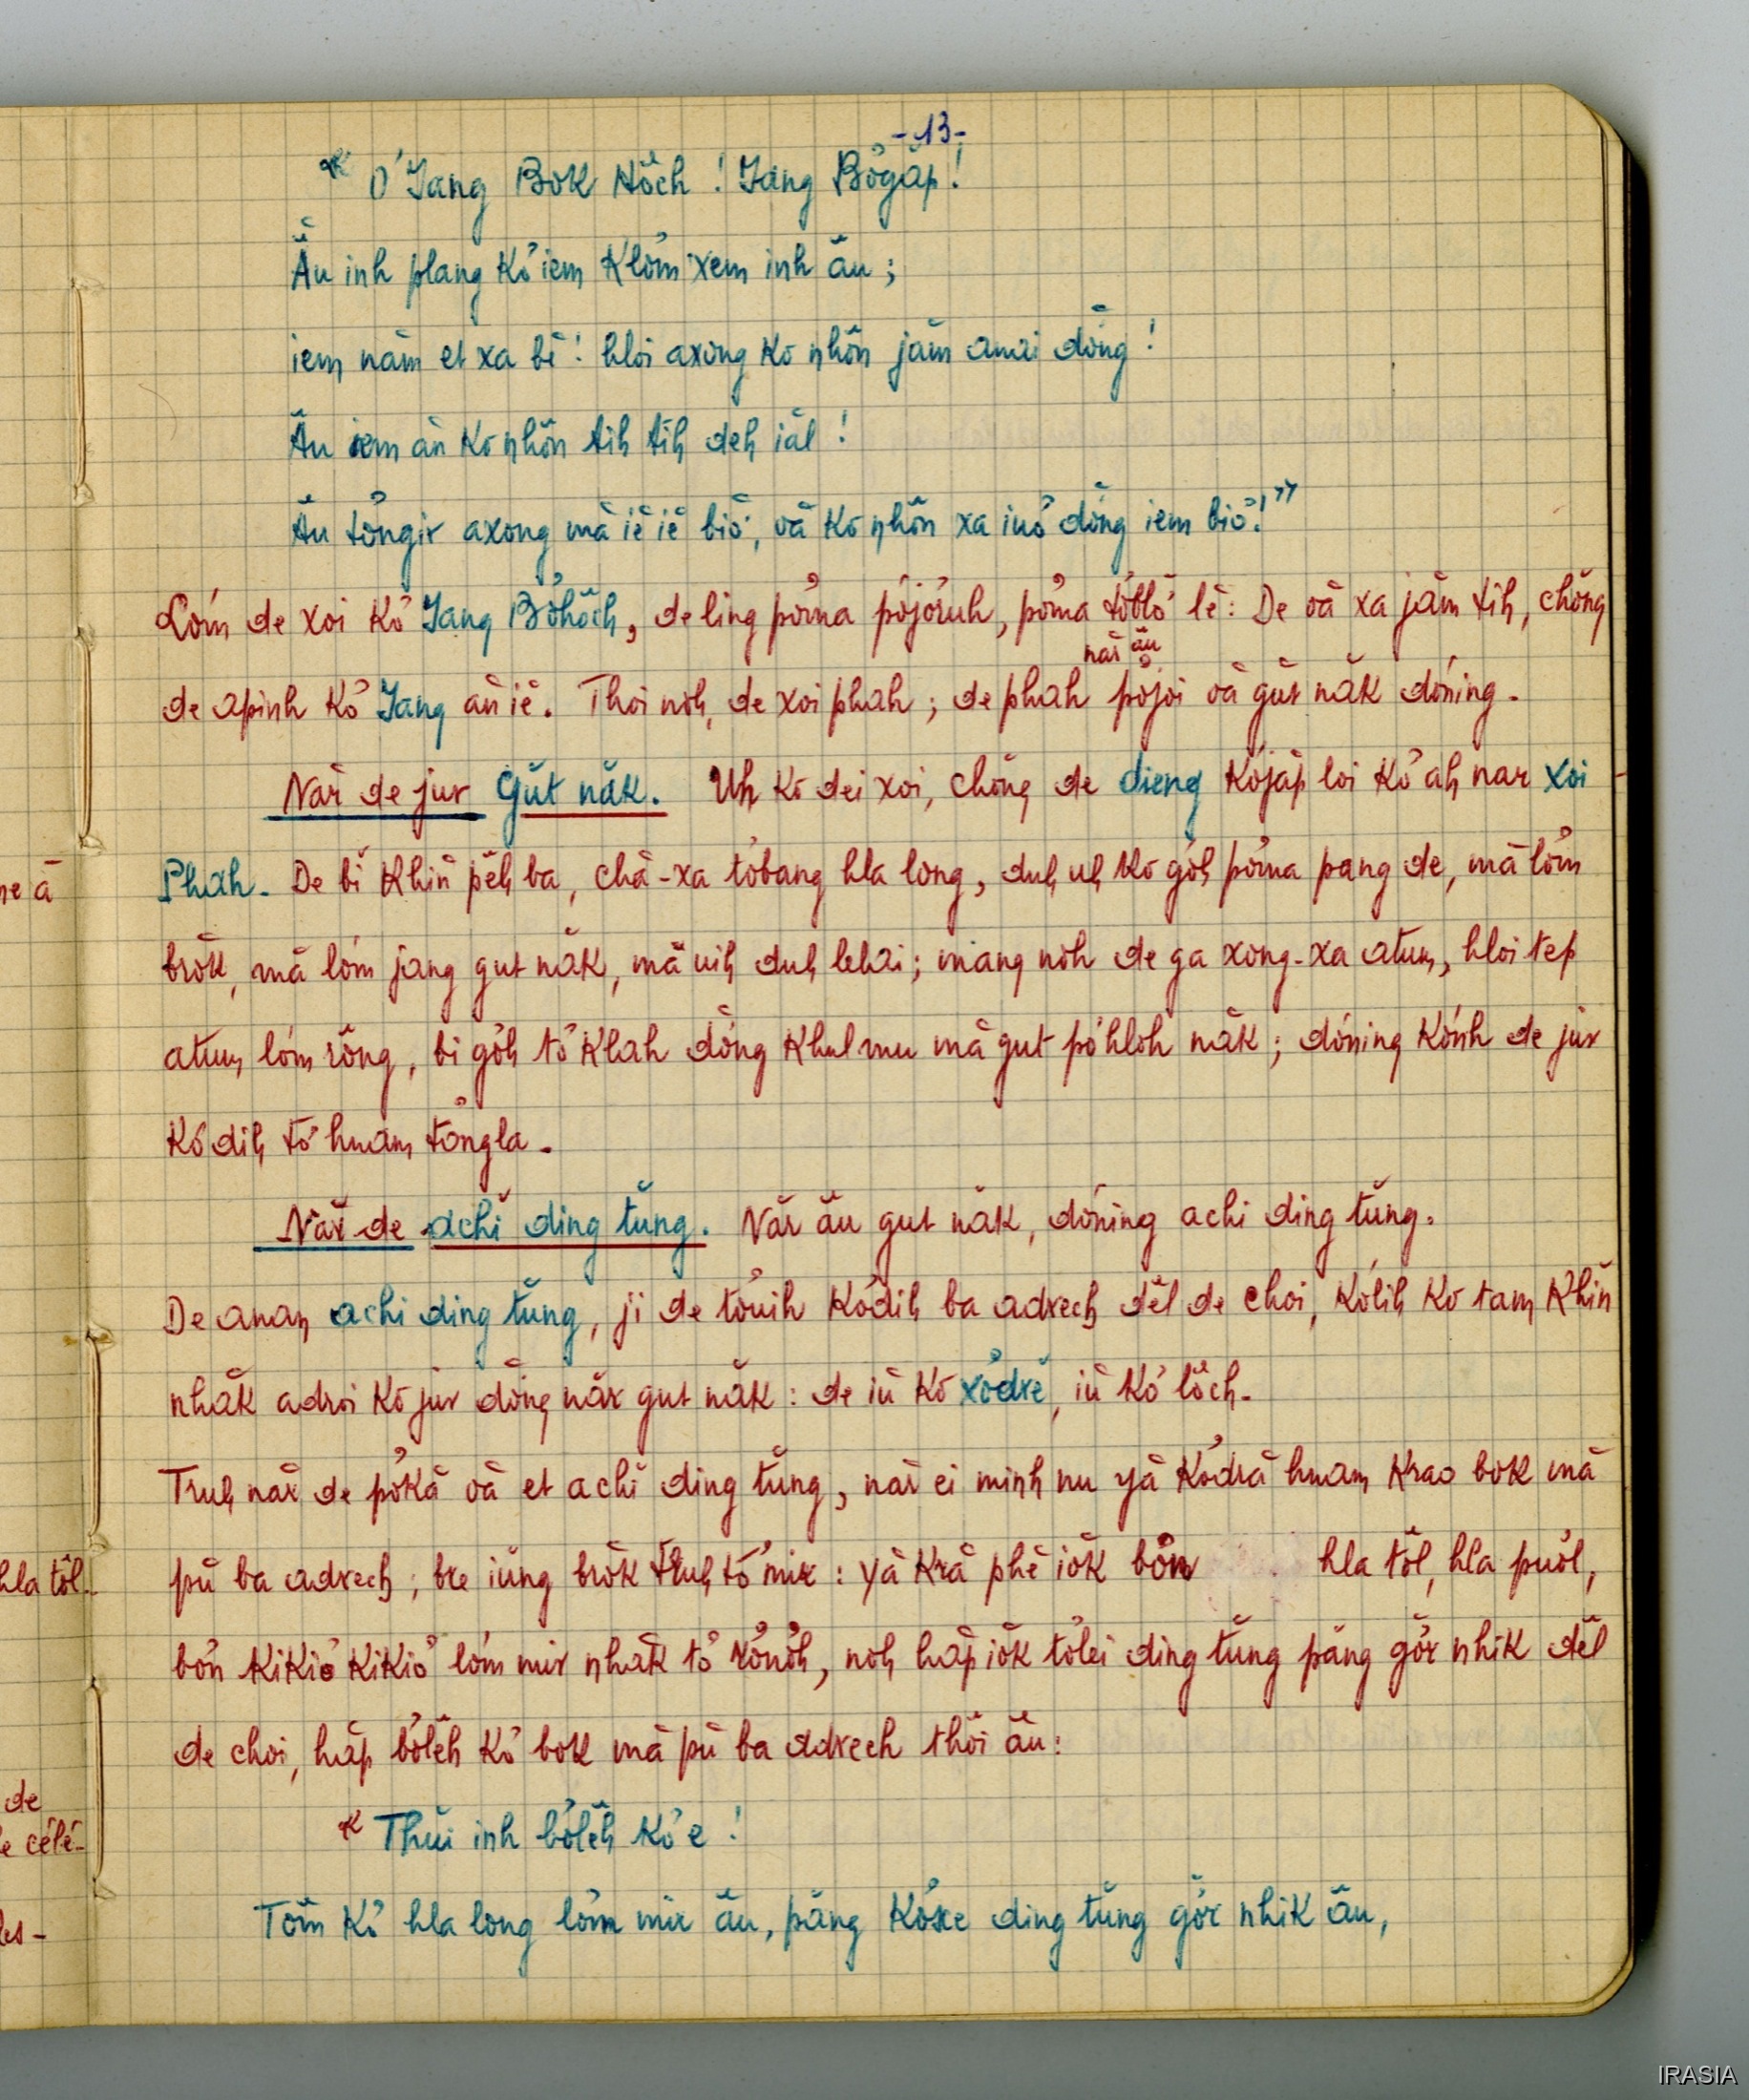 -13-
« Ơ Jang Bok Hŏch ! Jang Bơgăp !
Ău inh plang kơ iem klơ̆m xem inh ău ;
iem năm et xa bĕ ! hloi axong kơ nhŏn jăm amăi dơ̆ng !
Ău iem ăn kơ nhŏn tih tih deh iăl !
Ău tơngir axong mă iĕ iĕ biơ̆, vă kơ nhŏn xa inơ̆ dơ̆ng iem biơ̆ ! »
Lơ̆m de xoi kơ Jang Bơhŏch, de ling pơma pơjơruh, pơma tơblơ̆ lĕ : De vă xa jăm tih, chŏng
năr ău
de apinh kơ Jang ăn iĕ. Thoi noh, de xoi phah ; de phah pơjoi vă gŭt năk dơ̆ning.
Năr de jur gŭt năk. Uh kơ dei xoi, chŏng de dieng kơjăp loi kơ ah nar xoi
Phah. De bĭ khĭn pĕh ba, chă-xa tơbang hla long, duh uh kơ gơ̆h pơma pang de, mă lơ̆m
brŏk, mă lơ̆m jang gut năk, mă uih duh lelăi ; mang noh de ga xong-xa atum, hloi tep
atum lơ̆m rŏng, bi gơ̆h tơ̆ klah dơ̆ng khul mu mă gut pơhloh năk ; dơ̆ning kơnh de jur
kơdih tơ̆ hnam tơngla.
Năr de achĭ ding tŭng. Năr ău gut năk, dơ̆ning achi ding tŭng.
De anan achi ding tŭng, ji de tơuih kơdih ba adrech dĕl de choi, kơlih kơ tam khĭn
nhăk adroi kơ jur dơ̆ng năr gut năk : de iŭ kơ xơdrĕ, iŭ kơ lŏch.
Truh năr de pơkă vă et achĭ ding tŭng, năr ei minh nu yă kơdră hnam krao bok mă
pŭ ba adrech ; bre iŭng brŏk truh tơ̆ mir : yă kră phĕ iŏk bŏn hla tŏl, hla puŏl,
bŏn kikiơ̆ kikiơ̆ lơ̆m mir nhăk tơ̆ rơnŏh, noh hăp iŏk tơlei ding tŭng păng gŏr nhik dĕl
de choi, hăp bơlĕh kơ bok mă pŭ ba adrech thŏi ău :
« Thŭi inh bơlĕh kơ e !
Tơ̆m kơ hla long lơ̆m mir ău, păng kơxe ding tŭng gŏr nhik ău,
ne ă
hla tŏl
de
e célé-
les-
IRASIA